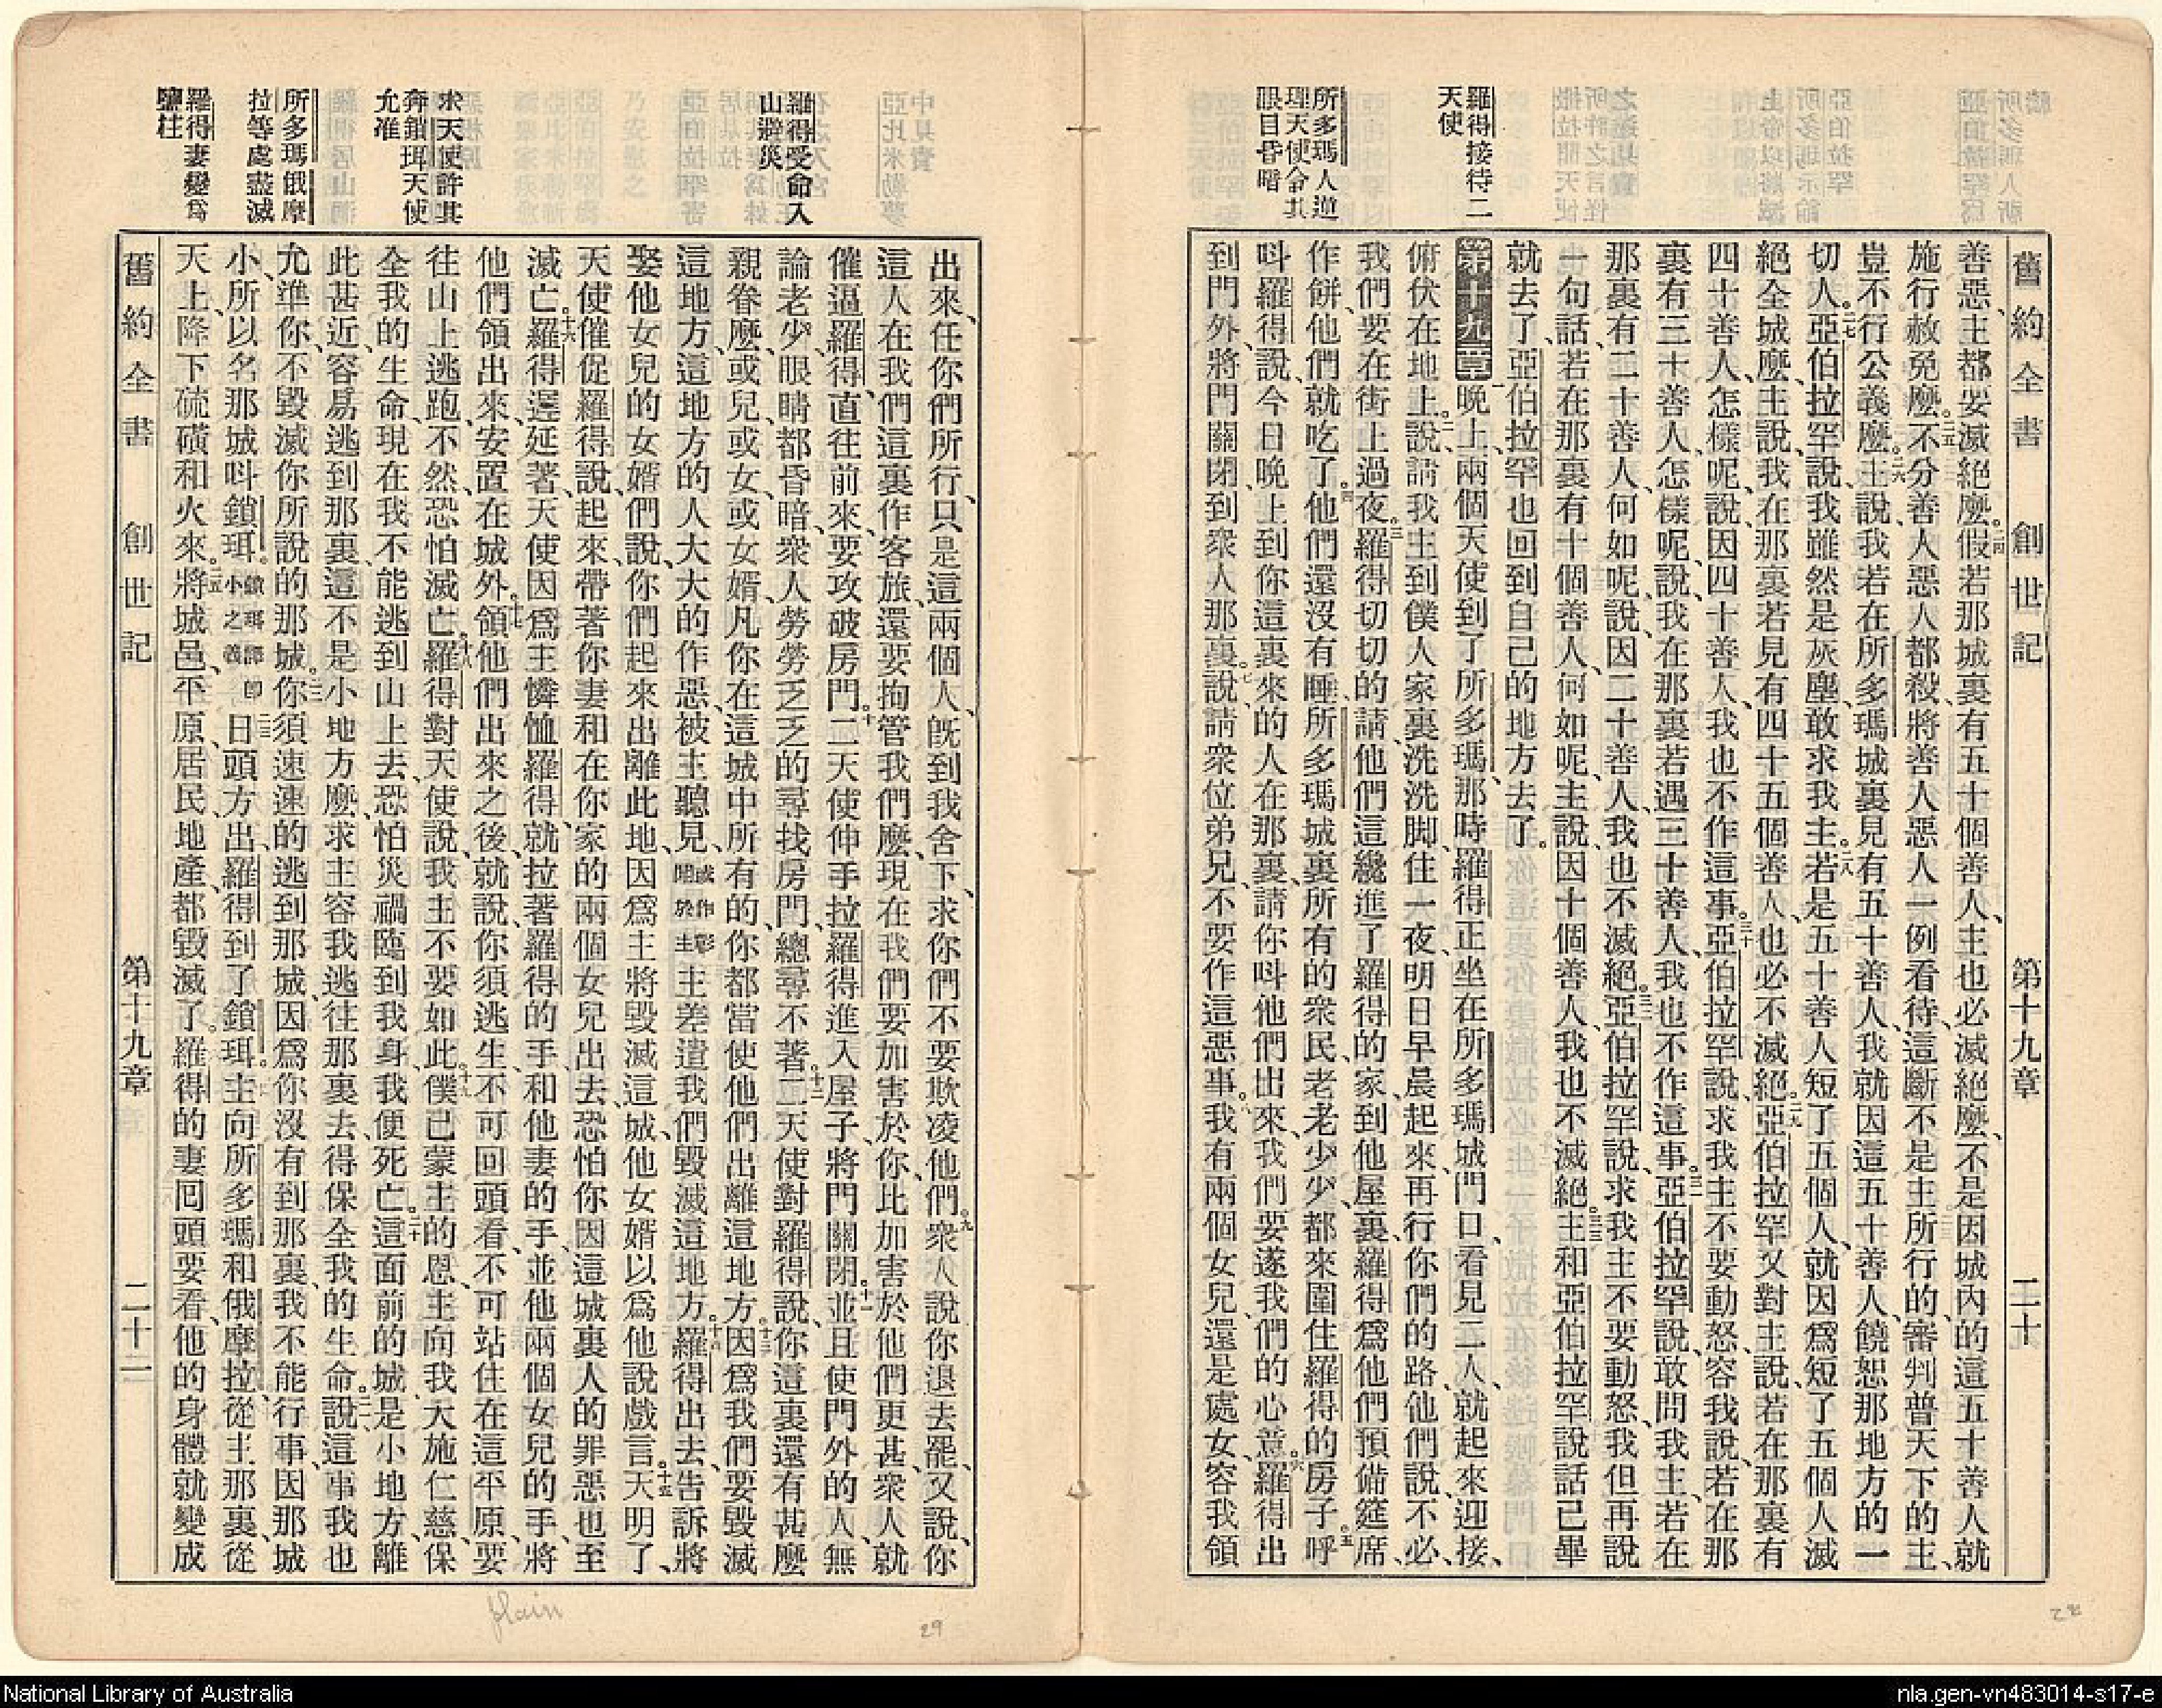 舊約全書 創世記 第十九章 二十
羅得接待二
天使
所多瑪人逆
理天使令其
眼目昏暗
善惡、主都要滅絕麼。二四假若那城裏有五十個善人、主也必滅絕麼、不是因城內的這五十善人就
施行赦免麼。二五不分善人惡人都殺、將善人惡人一例看待、這斷不是主所行的、審判普天下的主、
豈不行公義麼。二六主說、我若在所多瑪城裏見有五十善人、我就因這五十善人、饒恕那地方的一
切人。二七亞伯拉罕說、我雖然是灰塵、敢求我主。二八若是五十善人短了五個人、就因爲短了五個人滅
絕全城麼、主說、我在那裏若見有四十五個善人、也必不滅絕。二九亞伯拉罕又對主說、若在那裏有
四十善人怎樣呢、說、因四十善人、我也不作這事。三十亞伯拉罕說、求我主不要動怒、容我說、若在那
裏有三十善人、怎樣呢、說、我在那裏若遇三十善人、我也不作這事。三一亞伯拉罕說、敢問我主、若在
那裏有二十善人何如呢、說、因二十善人、我也不滅絕。三二亞伯拉罕說、求我主不要動怒、我但再說
一句話、若在那裏有十個善人、何如呢、主說、因十個善人、我也不滅絕。三三主和亞伯拉罕說話已畢
就去了、亞伯拉罕也回到自己的地方去了。
第十九章一晚上、兩個天使到了所多瑪、那時羅得正坐在所多瑪城門口、看見二人、就起來迎接、
俯伏在地上。二說、請我主到僕人家裏、洗洗脚、住一夜、明日早晨起來、再行你們的路、他們說、不必、
我們要在街上過夜。三羅得切切的請他們、這纔進了羅得的家、到他屋裏、羅得爲他們預備筵席、
作餅、他們就吃了。四他們還沒有睡、所多瑪城裏、所有的衆民、老老少少、都來圍住羅得的房子。五呼
呌羅得說、今日晚上到你這裏來的人在那裏、請你呌他們出來、我們要遂我們的心意。六羅得出
到門外、將門關閉、到衆人那裏。七說、請衆位弟兄、不要作這惡事。八我有兩個女兒、還是處女、容我領
羅得受命入
山避災
求天使許其
奔鎖珥天使
允准
所多瑪俄摩
拉等處盡滅
羅得妻變爲
鹽柱
出來、任你們所行、只是這兩個人、旣到我舍下、求你們不要欺凌他們。九衆人說、你退去罷、又說、你
這人在我們這裏作客旅、還要拘管我們麼、現在我們要加害於你、比加害於他們更甚、衆人就
催逼羅得、直往前來、要攻破房門。十二天使伸手拉羅得進入屋子、將門關閉。十一並且使門外的人、無
論老少、眼睛都昏暗、衆人勞勞乏乏的尋找房門、總尋不著。十二二天使對羅得說、你這裏還有甚麼
親眷麼、或兒、或女、或女婿、凡你在這城中所有的、你都當使他們出離這地方。十三因爲我們要毀滅
這地方、這地方的人大大的作惡、被主聽見、或作彰明於主主差遣我們毀滅這地方。十四羅得出去、告訴將
娶他女兒的女婿們說、你們起來出離此地、因爲主將毀滅這城、他女婿以爲他說戲言。十五天明了、
天使催促羅得說、起來、帶著你妻和在你家的兩個女兒出去、恐怕你因這城裏人的罪惡也至
滅亡。十六羅得遲延著、天使因爲主憐恤羅得、就拉著羅得的手、和他妻的手、並他兩個女兒的手、將
他們領出來、安置在城外。十七領他們出來之後、就說、你須逃生、不可回頭看、不可站住在這平原、要
往山上逃跑、不然、恐怕滅亡。十八羅得對天使說、我主不要如此。十九僕已蒙主的恩、主向我大施仁慈、保
全我的生命、現在我不能逃到山上去、恐怕災禍臨到我身、我便死亡。二十這面前的城、是小地方、離
此甚近、容易逃到那裏、這不是小地方麼、求主容我逃往那裏去、得保全我的生命。二一說、這事我也
允準你、不毀滅你所說的那城。二二你須速速的逃到那城、因爲你沒有到那裏、我不能行事、因那城
小、所以名那城呌鎖珥。鎖珥譯卽小之義二三日頭方出、羅得到了鎖珥。主向所多瑪和俄摩拉、從主那裏、從
天上、降下硫磺和火來。二五將城邑、平原、居民、地產、都毀滅了。羅得的妻回頭要看、他的身體就變成
舊約全書 創世記 第十九章 二十一
plain
29
28
National Library of Australia
nla.gen-vn483014-s17-e